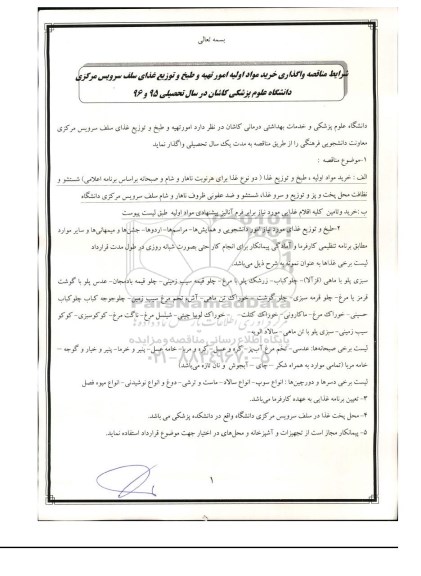 بسمه تعالی
شرایط مناقصه واگذاری خرید مواد اولیه امور تهیه و طبخ و توزیع غذای سلف سرویس مرکزی
دانشگاه علوم پزشکی کاشان در سال تحصیلی ۹۵ و ۹۶
دانشگاه علوم پزشکی و خدمات بهداشتی درمانی کاشان در نظر دارد امور تهیه و طبخ و توزیع غذای سلف سرویس مرکزی
معاونت دانشجویی فرهنگی را از طریق مناقصه به مدت یک سال تحصیلی واگذار نماید.
۱-موضوع مناقصه :
الف : خرید مواد اولیه ، طبخ و توزیع غذا ( دو نوع غذا برای هر نوبت ناهار و شام و صبحانه براساس برنامه اعلامی) شستشو و
نظافت محل پخت و پز و توزیع و سرو غذا، شستشو و ضد عفونی ظروف ناهار و شام سلف سرویس مرکزی دانشگاه
ب : خرید وتامین کلیه اقلام غذایی مورد نیاز برابر فرم آنالیز پیشنهادی مواد اولیه طبق لیست پیوست
۲-طبخ و توزیع غذای مورد نیاز امور دانشجویی و همایش‌ها- مراسم‌ها- اردوها- جشن‌ها و میهمانی‌ها و سایر موارد
مطابق برنامه تنظیمی کارفرما و آمادگی پیمانکار برای انجام کار حتی بصورت شبانه روزی در طول مدت قرارداد
لیست برخی غذاها به عنوان نمونه به شرح ذیل می‌باشد.
سبزی پلو با ماهی (قزل‌آلا)- چلوکباب- زرشک پلو با مرغ - چلو قیمه سیب زمینی- چلو قیمه بادمجان- عدس پلو با گوشت
قرمز یا مرغ- چلو قرمه سبزی- چلو گوشت - خوراک تن ماهی- آش- تخم مرغ سیب زمین - چلو جوجه کباب چلوکباب
حسینی- خوراک مرغ- ماکارونی- خوراک کتلت- خوراک لوبیا چیتی- شینسل مرغ- ناگت مرغ- کوکوسبزی- کوکو
سیب زمینی- سبزی پلو با تن ماهی- سالاد الویه-
لیست برخی صبحانه‌ها: عدسی- تخم مرغ آب‌پز- کره و عسل- کره و مربا- خامه عسل- پنیر و خرما- پنیر و خیار و گوجه –
خامه مربا (تمامی موارد به همراه شکر – چای – آبجوش و نان تازه می‌باشد)
لیست برخی دسرها و دورچین‌ها : انواع سوپ- انواع سالاد- ماست و ترشی- دوغ و انواع نوشیدنی- انواع میوه فصل
۳- تعیین برنامه غذایی به عهده کارفرما می‌باشد.
۴-محل پخت غذا در سلف سرویس مرکزی دانشگاه واقع در دانشکده پزشکی می باشد.
۵- پیمانکار مجاز است از تجهیزات و آشپزخانه و محل‌های در اختیار جهت موضوع قرارداد استفاده نماید.
۱
ParsNamadData
پایگاه اطلاع رسانی مناقصه و مزایده
۰۲۱-۸۸۳۴۹۶۷۰-۵